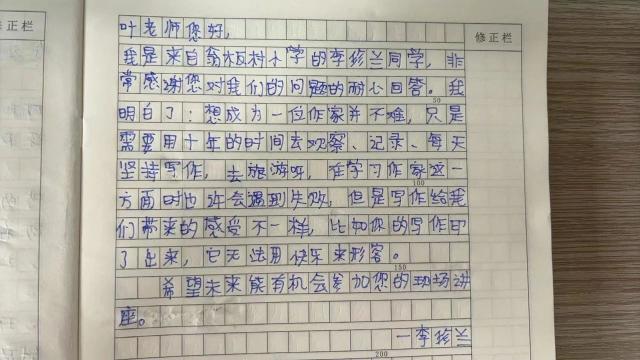 修正栏
修正栏
叶老师您好,
我是来自翁板村小学的李珍兰同学,非
常感谢您对我们的问题的耐心回答。我
50
明白了:想成为一位作家并不难,只是
需要用十年的时间去观察、记录、每天
坚持写作,去旅游呀,在学习作家这一
100
方面时也许会遇到失败,但是写作给我
们带来的感受不一样,比如你的写作印
了出来,它无法用快乐来形容。
150
希望未来能有机会参加您的现场讲
座。
一李珍兰
200